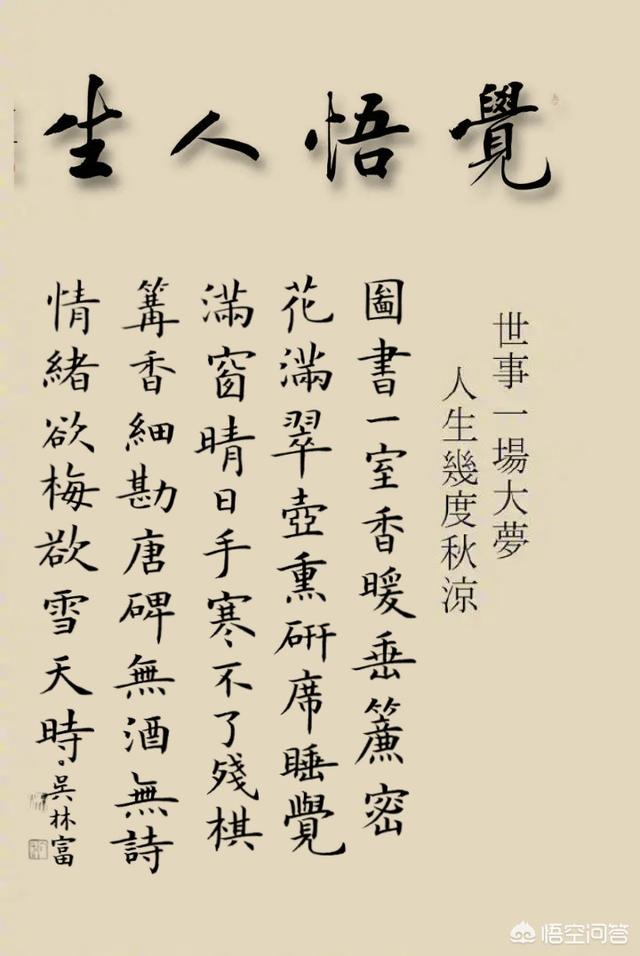 覺悟人生
世事一場大夢
人生幾度秋涼
圖書一室香暖垂簾密
花滿翠壺熏研席睡覺
滿窗晴日手寒不了殘棋
篝香細勘唐碑無酒無詩
情緒欲梅欲雪天時
吳林富
悟空问答